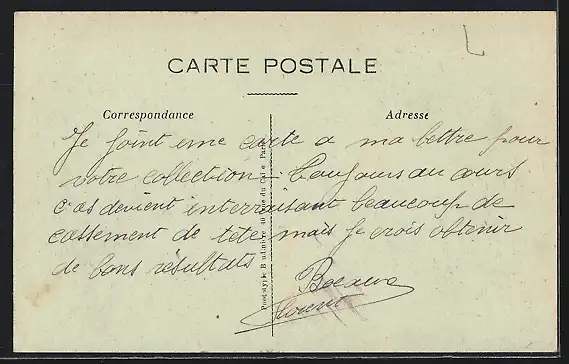 L
CARTE POSTALE
Correspondance
Adresse
Je joint une carte a ma lettre pour
votre collection - Toujours au cours
c as devient interraisant beaucoup de
cassement de tete mais je crois obtenir
de bons résultats